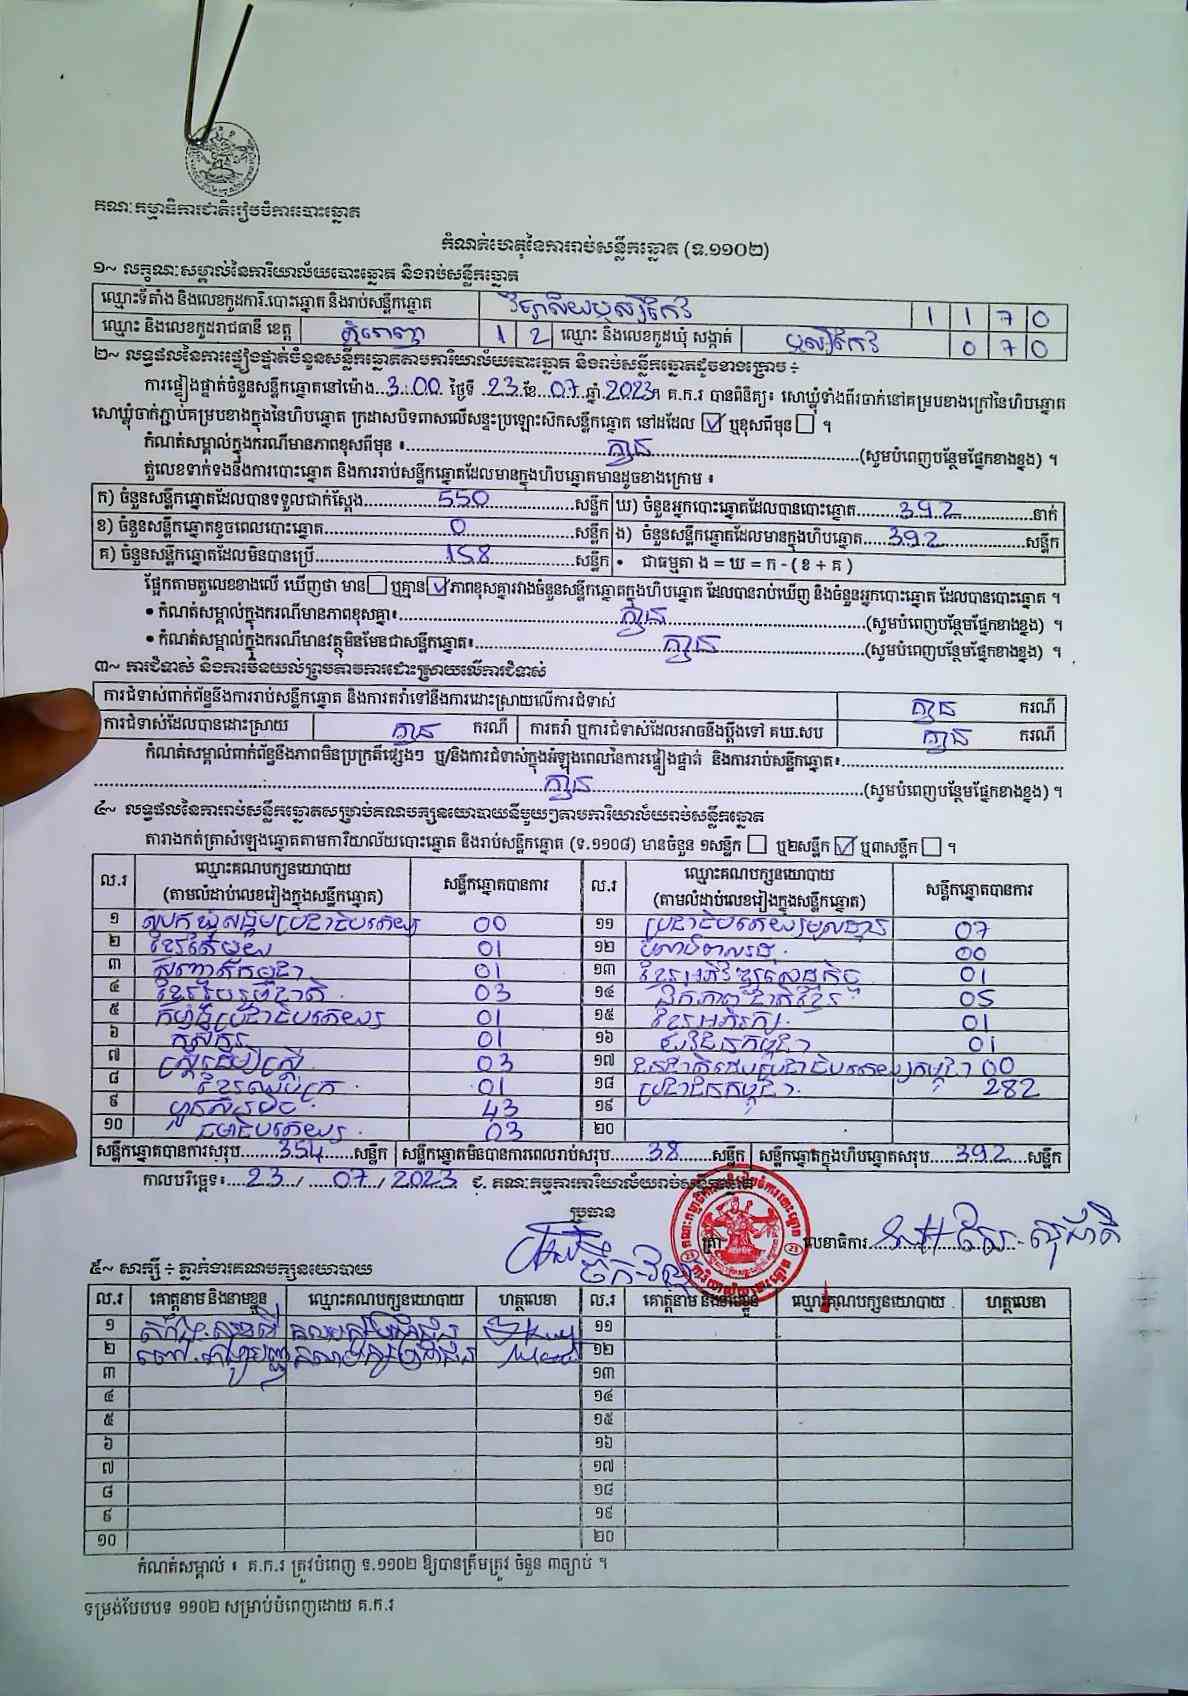 គណៈកម្មាធិការជាតិរៀបចំការបោះឆ្នោត
កំណត់ហេតុនៃការរាប់សន្លឹកឆ្នោត (ទ.១១០២)
១~ លក្ខណៈសម្គាល់នៃការិយាល័យបោះឆ្នោត និងរាប់សន្លឹកឆ្នោត
ឈ្មោះទីតាំង និងលេខកូដការិ.បោះឆ្នោត និងរាប់សន្លឹកឆ្នោត វិទ្យាល័យឫស្សីកែវ 1 1 7 0
ឈ្មោះ និងលេខកូដរាជធានី ខេត្ត ភ្នំពេញ 1 2 ឈ្មោះ និងលេខកូដឃុំ សង្កាត់ ឫស្សីកែវ 0 7 0
២~ លទ្ធផលនៃការផ្ទៀងផ្ទាត់ចំនួនសន្លឹកឆ្នោតតាមការិយាល័យបោះឆ្នោត និងរាប់សន្លឹកឆ្នោតដូចខាងក្រោម ÷
ការផ្ទៀងផ្ទាត់ចំនួនសន្លឹកឆ្នោតនៅម៉ោង..3:00 ថ្ងៃទី .23.ខែ..07..ឆ្នាំ.2023។ គ.ក.រ បានពិនិត្យ៖ សោឃ្លុំទាំងពីរចាក់នៅគម្របខាងក្រៅនៃហិបឆ្នោត
សោឃ្លុំចាក់ភ្ជាប់គម្របខាងក្នុងនៃហិបឆ្នោត ក្រដាសបិទពាសលើសន្ទះប្រឡោះស៊កសន្លឹកឆ្នោត នៅដដែល ☑ ឬខុសពីមុន ☐ ។
កំណត់សម្គាល់ក្នុងករណីមានភាពខុសពីមុន ៖ គ្មាន (សូមបំពេញបន្ថែមផ្នែកខាងខ្នង) ។
តួលេខទាក់ទងនឹងការបោះឆ្នោត និងការរាប់សន្លឹកឆ្នោតដែលមានក្នុងហិបឆ្នោតមានដូចខាងក្រោម ៖
ក) ចំនួនសន្លឹកឆ្នោតដែលបានទទួលជាក់ស្តែង 550 សន្លឹក ឃ) ចំនួនអ្នកបោះឆ្នោតដែលបានបោះឆ្នោត 392 នាក់
ខ) ចំនួនសន្លឹកឆ្នោតខូចពេលបោះឆ្នោត 0 សន្លឹក ង) ចំនួនសន្លឹកឆ្នោតដែលមានក្នុងហិបឆ្នោត 392 សន្លឹក
គ) ចំនួនសន្លឹកឆ្នោតដែលមិនបានប្រើ 158 សន្លឹក • ជាធម្មតា ង = ឃ = ក - ( ខ + គ )
ផ្អែកតាមតួលេខខាងលើ ឃើញថា មាន ☐ ឬគ្មាន ☑ ភាពខុសគ្នារវាងចំនួនសន្លឹកឆ្នោតក្នុងហិបឆ្នោត ដែលបានរាប់ឃើញ និងចំនួនអ្នកបោះឆ្នោត ដែលបានបោះឆ្នោត ។
• កំណត់សម្គាល់ក្នុងករណីមានភាពខុសគ្នា៖ គ្មាន (សូមបំពេញបន្ថែមផ្នែកខាងខ្នង) ។
• កំណត់សម្គាល់ក្នុងករណីមានវត្ថុមិនមែនជាសន្លឹកឆ្នោត៖ គ្មាន (សូមបំពេញបន្ថែមផ្នែកខាងខ្នង) ។
៣~ ការជំទាស់ និងការមិនយល់ព្រមតាមការដោះស្រាយលើការជំទាស់
ការជំទាស់ពាក់ព័ន្ធនឹងការរាប់សន្លឹកឆ្នោត និងការតវ៉ាទៅនឹងការដោះស្រាយលើការជំទាស់ គ្មាន ករណី
ការជំទាស់ដែលបានដោះស្រាយ គ្មាន ករណី ការតវ៉ា ឬការជំទាស់ដែលអាចនឹងប្តឹងទៅ គឃ.សប គ្មាន ករណី
កំណត់សម្គាល់ពាក់ព័ន្ធនឹងភាពមិនប្រក្រតីផ្សេងៗ ឬ/និងការជំទាស់ក្នុងអំឡុងពេលនៃការផ្ទៀងផ្ទាត់ និងការរាប់សន្លឹកឆ្នោត៖
គ្មាន (សូមបំពេញបន្ថែមផ្នែកខាងខ្នង) ។
៤~ លទ្ធផលនៃការរាប់សន្លឹកឆ្នោតសម្រាប់គណបក្សនយោបាយនីមួយៗតាមការិយាល័យរាប់សន្លឹកឆ្នោត
តារាងកត់ត្រាសំឡេងឆ្នោតតាមការិយាល័យបោះឆ្នោត និងរាប់សន្លឹកឆ្នោត (ទ.១១០៨) មានចំនួន ១សន្លឹក ☐ ឬ២សន្លឹក ☑ ឬ៣សន្លឹក ☐ ។
ល.រ ឈ្មោះគណបក្សនយោបាយ (តាមលំដាប់លេខរៀងក្នុងសន្លឹកឆ្នោត) សន្លឹកឆ្នោតបានការ ល.រ ឈ្មោះគណបក្សនយោបាយ (តាមលំដាប់លេខរៀងក្នុងសន្លឹកឆ្នោត) សន្លឹកឆ្នោតបានការ
១ សំបុកឃ្មុំសង្គមប្រជាធិបតេយ្យ 00 ១១ ប្រជាធិបតេយ្យមូលដ្ឋាន 07
២ ខ្មែរតែមួយ 01 ១២ 00
៣ សញ្ជាតិកម្ពុជា 01 ១៣ ខ្មែរអភិវឌ្ឍសេដ្ឋកិច្ច 01
៤ ខ្មែររួបរួមជាតិ 03 ១៤ ឯកភាពជាតិខ្មែរ 05
៥ កម្លាំងប្រជាធិបតេយ្យ 01 ១៥ ខ្មែរអភិរក្ស 01
៦ កសិករ 01 ១៦ យុវជនកម្ពុជា 01
៧ ស្ត្រីដើម្បីស្ត្រី 03 ១៧ ជនជាតិដើមប្រជាធិបតេយ្យកម្ពុជា 00
៨ ខ្មែរឈប់ក្រ 01 ១៨ ប្រជាជនកម្ពុជា 282
៩ ហ៊្វុនស៊ិនប៉ិច 43 ១៩
១០ ធម្មាធិបតេយ្យ 03 ២០
សន្លឹកឆ្នោតបានការសរុប 354 សន្លឹក សន្លឹកឆ្នោតមិនបានការពេលរាប់សរុប 38 សន្លឹក សន្លឹកឆ្នោតក្នុងហិបឆ្នោតសរុប 392 សន្លឹក
កាលបរិច្ឆេទ៖ 23 / 07 / 2023 ជ. គណៈកម្មការការិយាល័យរាប់សន្លឹកឆ្នោត
ប្រធាន
ត្រា លេខាធិការ សុជាតិ
៥~ សាក្សី ÷ ភ្នាក់ងារគណបក្សនយោបាយ
ល.រ គោត្តនាម និងនាមខ្លួន ឈ្មោះគណបក្សនយោបាយ ហត្ថលេខា ល.រ គោត្តនាម និងនាមខ្លួន ឈ្មោះគណបក្សនយោបាយ ហត្ថលេខា
១ ១១
២ ១២
៣ ១៣
៤ ១៤
៥ ១៥
៦ ១៦
៧ ១៧
៨ ១៨
៩ ១៩
១០ ២០
កំណត់សម្គាល់ ៖ គ.ក.រ ត្រូវបំពេញ ទ.១១០២ ឱ្យបានត្រឹមត្រូវ ចំនួន ៣ច្បាប់ ។
ទម្រង់បែបបទ ១១០២ សម្រាប់បំពេញដោយ គ.ក.រ